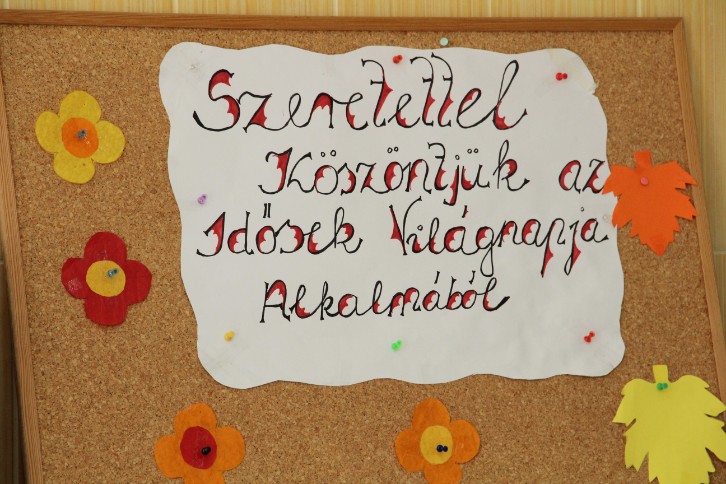 Szeretettel
Köszöntjük az
Idősek Világnapja
Alkalmából